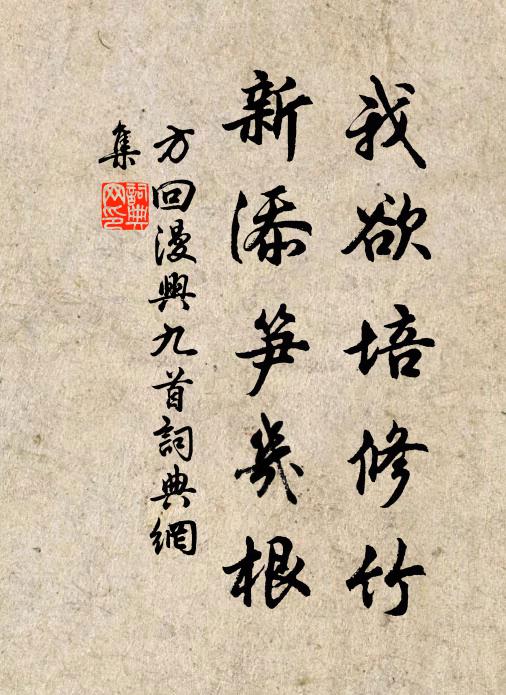 我欲培修竹
新添笋几根
方回漫興九首詞典網
集
詞典
网印